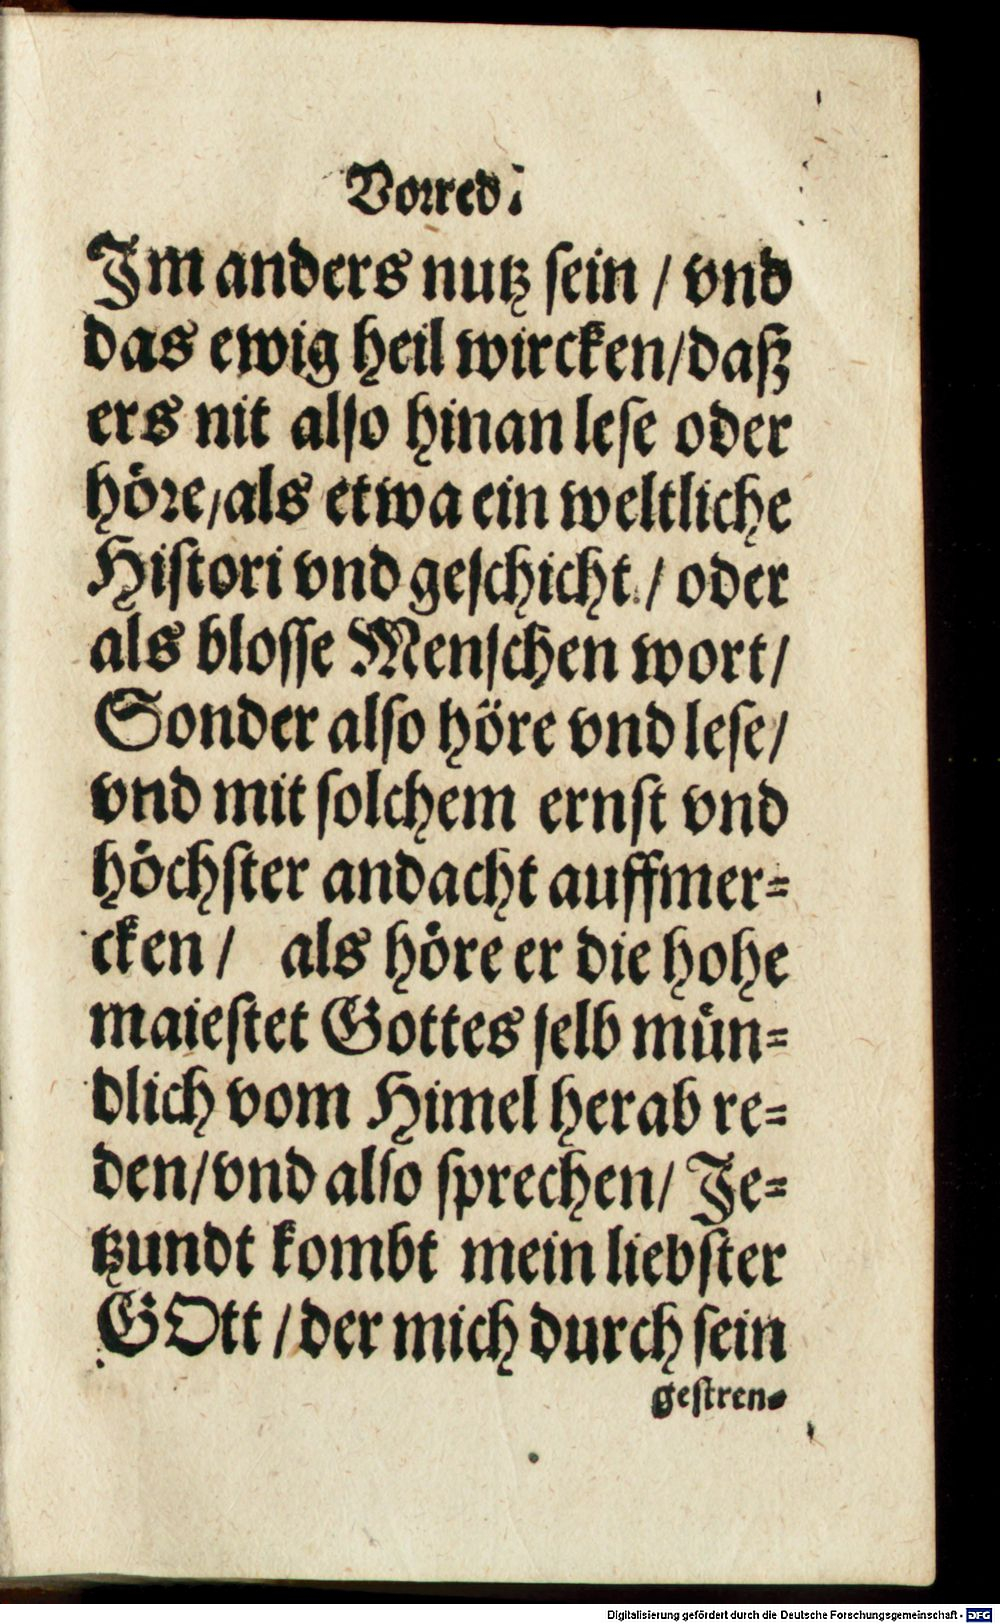 Vorred.
Im anders nutz sein / vnd
das ewig heil wircken/daß
ers nit also hinan lese oder
höre/als etwa ein weltliche
Histori vnd geschicht / oder
als blosse Menschen wort/
Sonder also höre vnd lese/
vnd mit solchem ernst vnd
höchster andacht auffmer-
cken / als höre er die hohe
maiestet Gottes selb mün-
dlich vom Himel herab re-
den/vnd also sprechen/ Je-
tzundt kombt mein liebster
GOtt /der mich durch sein
gestren-
Digitalisierung gefördert durch die Deutsche Forschungsgemeinschaft - DFG